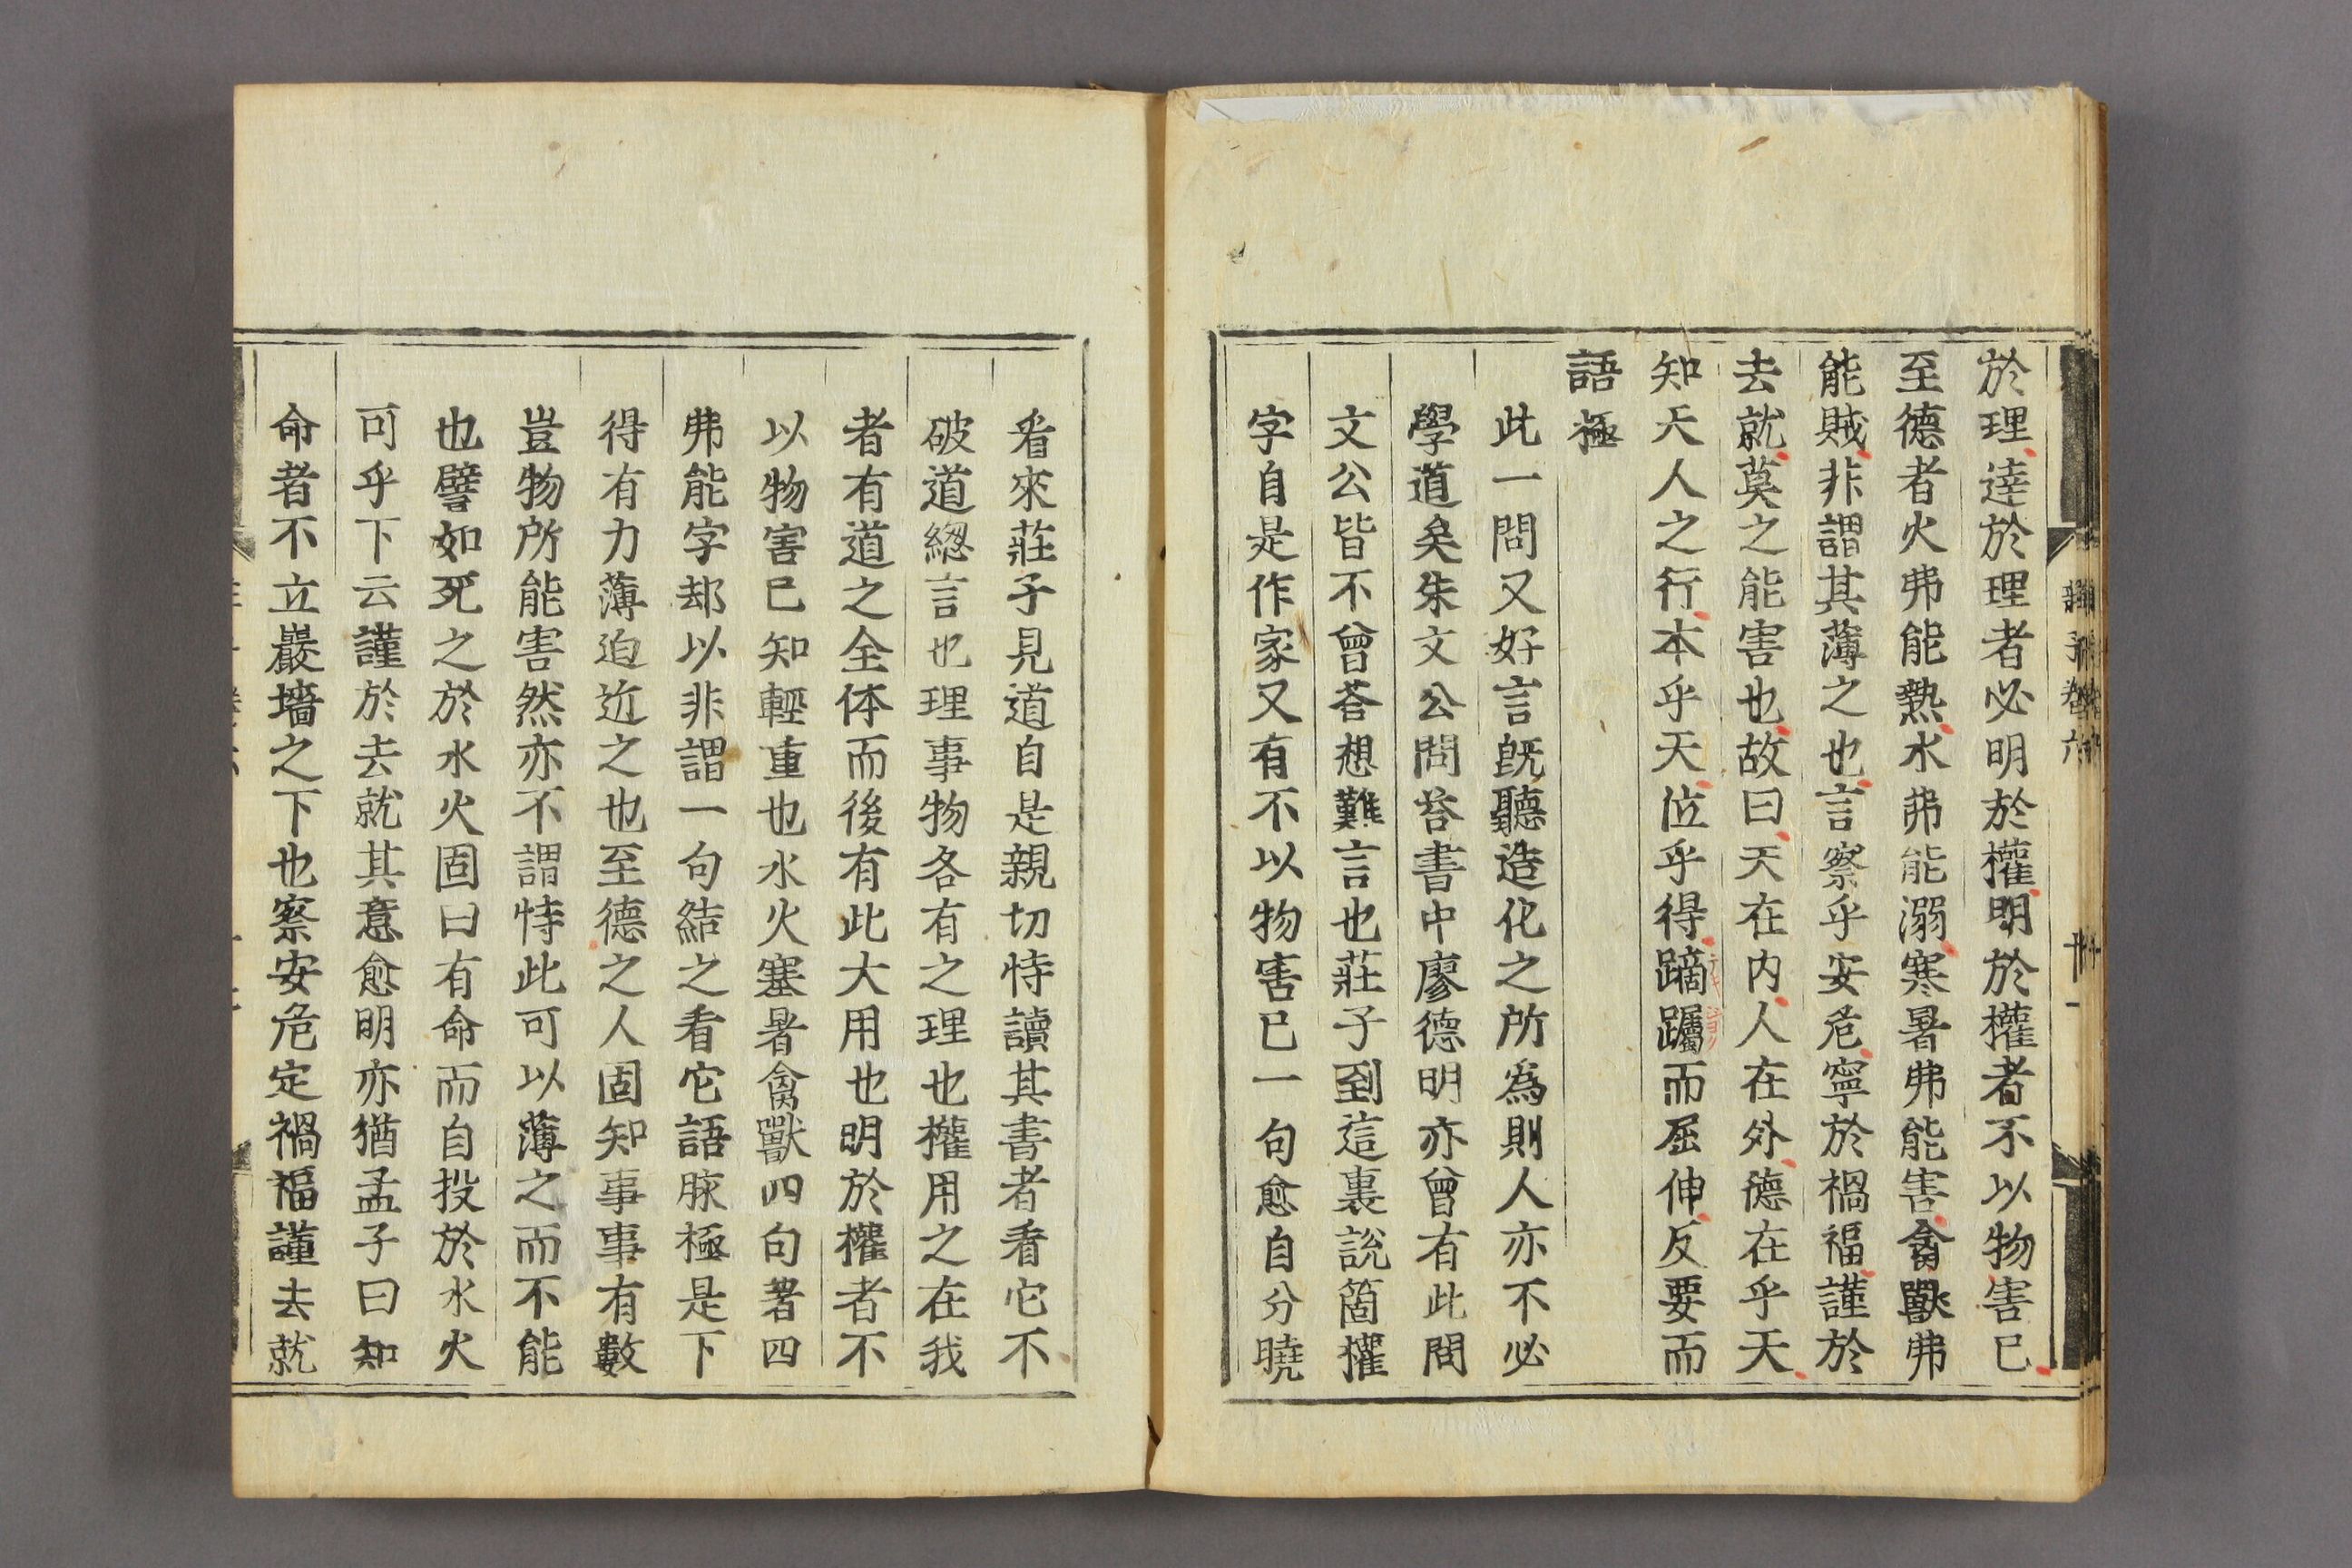 於理達於理者必明於權明於權者不以物害已
至德者火弗能熱水弗能溺寒暑弗能害禽獸弗
能賊非謂其薄之也言察乎安危寧於禍福謹於
去就莫之能害也故曰天在内人在外德在乎天
知天人之行本乎天位乎得蹢躅而屈伸反要而
語極
此一問又好言旣聽造化之所爲則人亦不必
學道矣朱文公問荅書中廖德明亦曾有此問
文公皆不曾荅想難言也莊子到這裏說箇權
字自是作家又有不以物害已一句愈自分曉
看來莊子見道自是親切恃讀其書者看它不
破道緫言也理事物各有之理也權用之在我
者有道之全体而後有此大用也明於權者不
以物害已知輕重也水火寒暑禽獸四句著四
弗能字却以非謂一句結之看它語脉極是下
得有力薄迫近之也至德之人固知事事有數
豈物所能害然亦不謂恃此可以薄之而不能
也譬如死之於水火固曰有命而自投於水火
可乎下云謹於去就其意愈明亦猶孟子曰知
命者不立巖墻之下也察安危定禍福謹去就